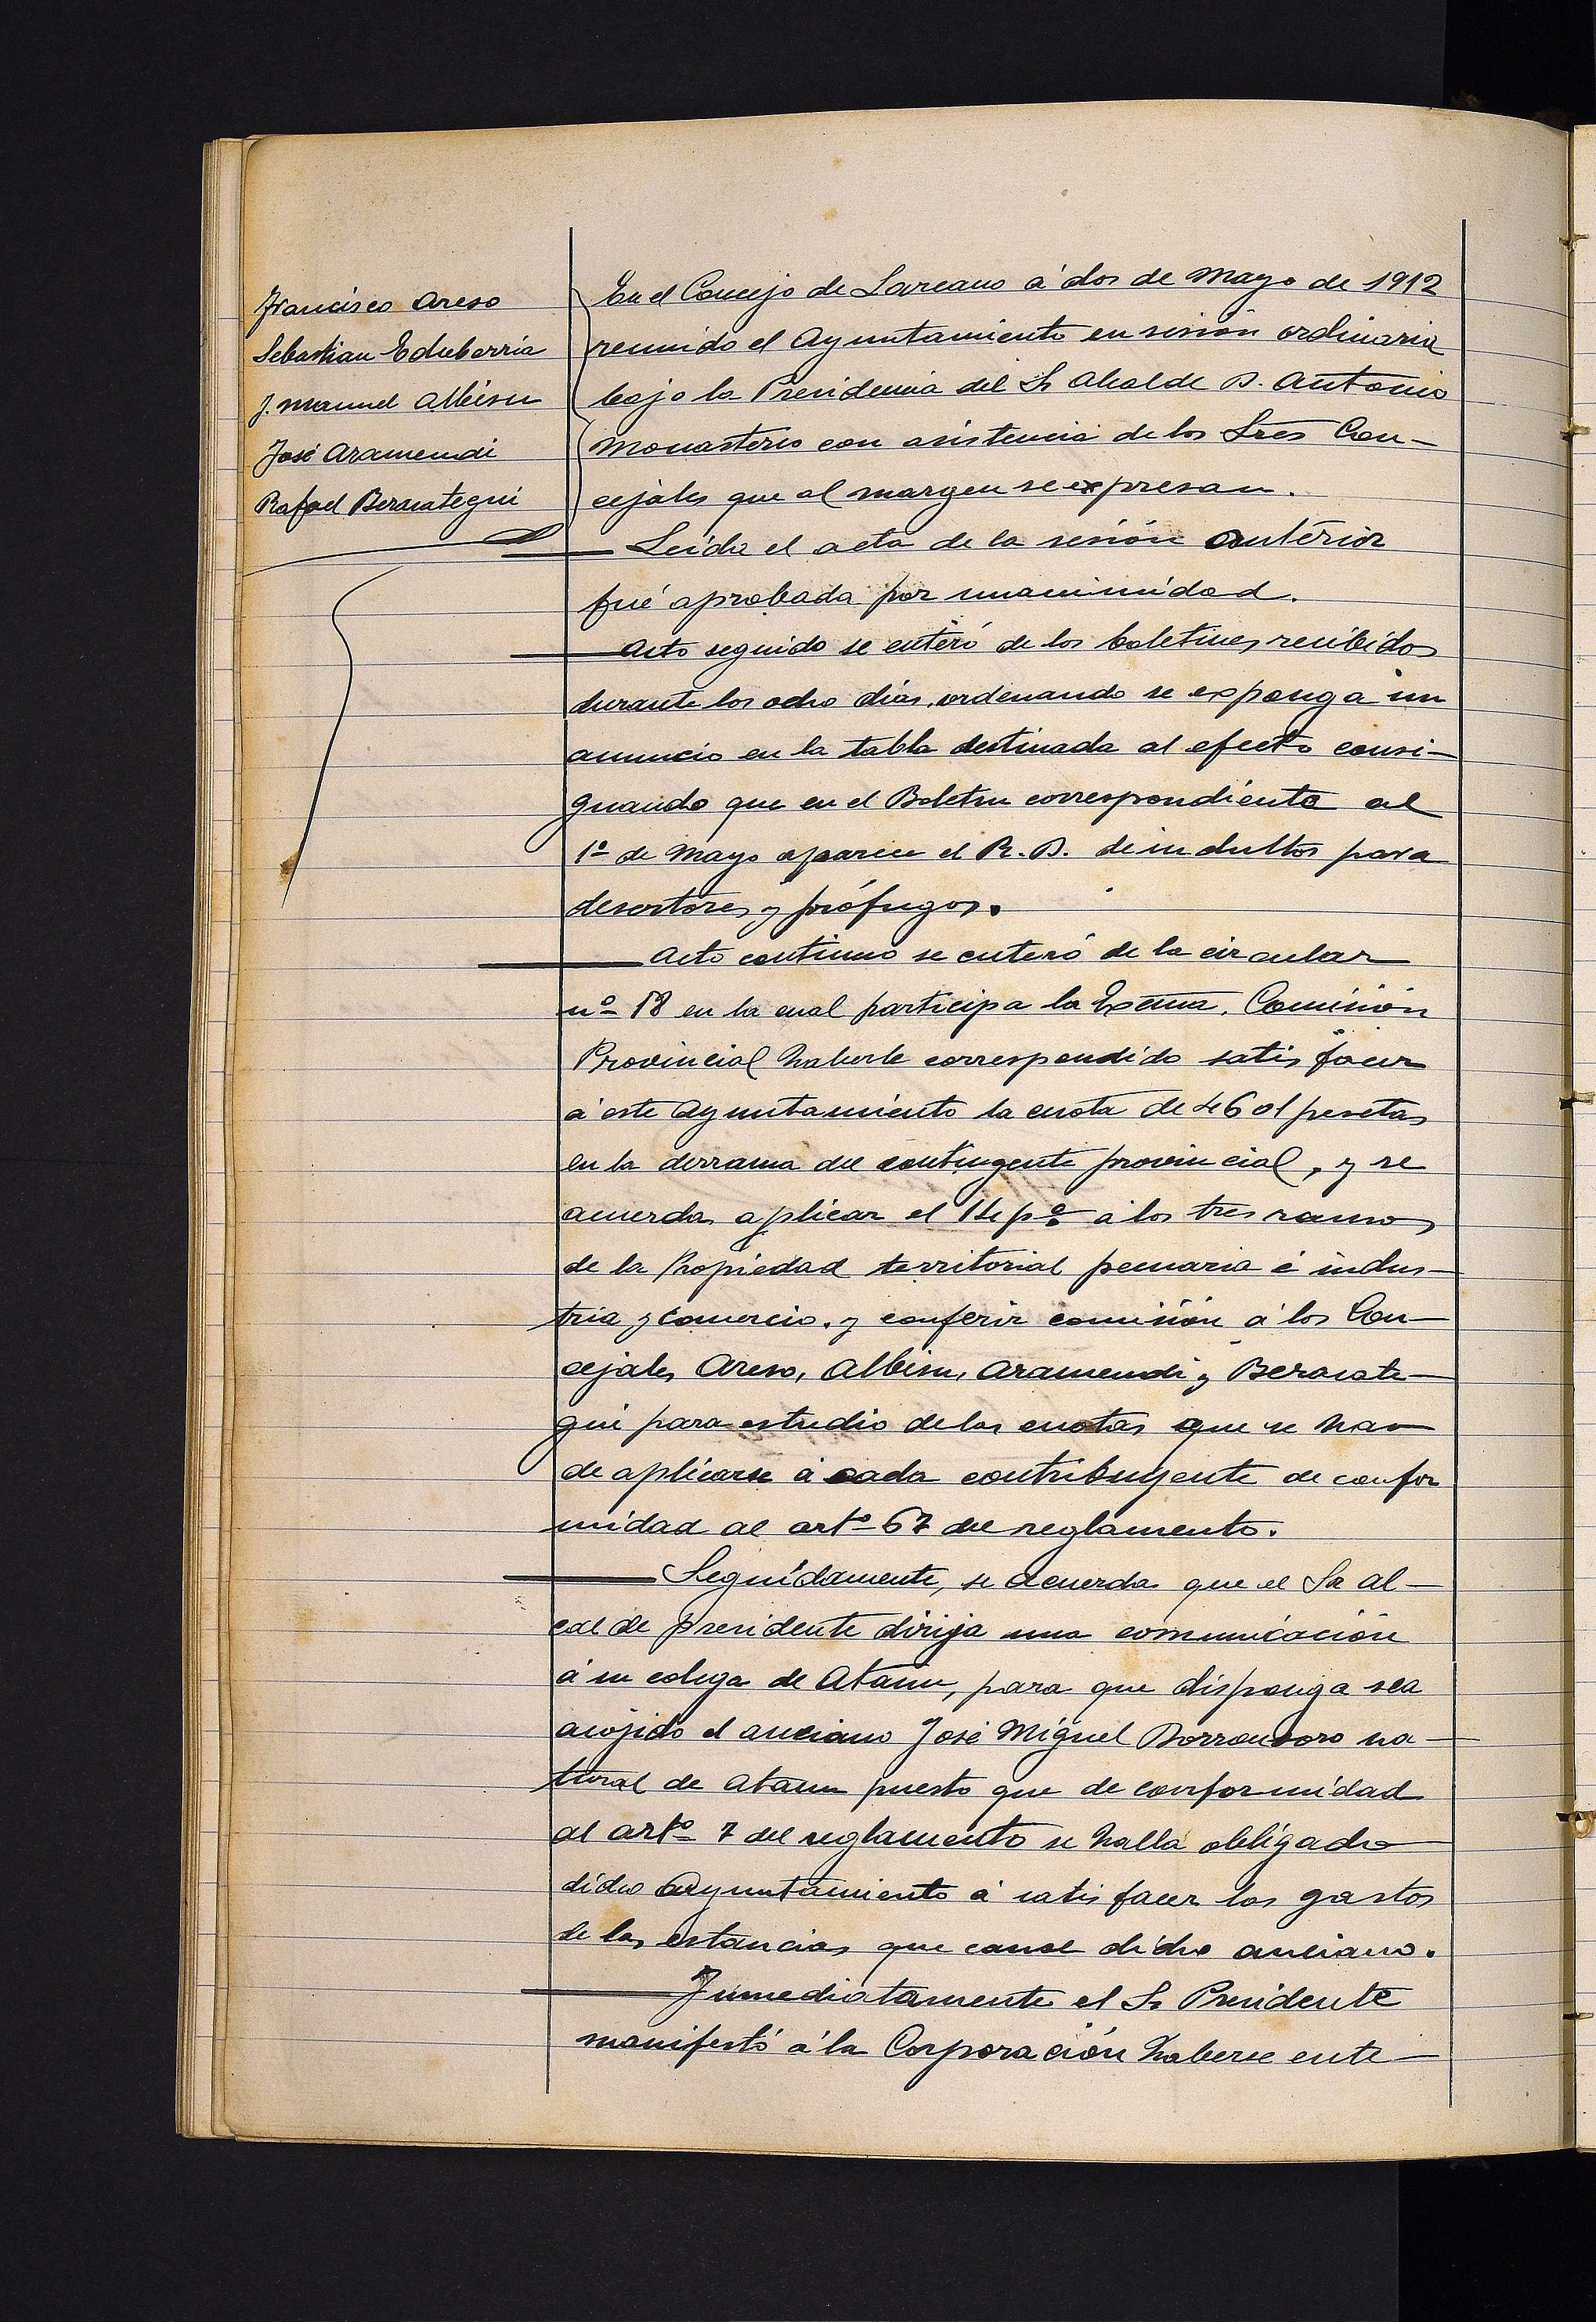 Francisco Areso
Sebastian Echeberria
J. Manuel Albisu
José Aramendi
Rafael Berasategui
En el Concejo de Lazcano á dos de Mayo de 1912
reunido el Ayuntamiento en sesión ordinaria
bajo la Presidencia del Sr Alcalde D. Antonio
Monasterio con asistencia de los Sres Con-
cejales que al margen se expresan.
Leída el acta de la sesión anterior
fué aprobada por unanimidad.
Acto seguido se enteró de los boletines recibidos
durante los ocho días, ordenando se exponga un
anuncio en la tabla destinada al efecto consi-
gnando que en el Boletin correspondiente al
1º de Mayo aparece el R. D. de indultos para
desertores y prófugos.
Acto continuo se enteró de la circular
nº 18 en la cual participa la Excma. Comisión
Provincial haberle correspondido satisfacer
á este Ayuntamiento la cuota de 4601 pesetas
en la derrama del contingente provincial, y se
acuerda aplicar el 14 pº á los tres ramos
de la Propiedad territorial pecuaria é indus-
tria y comercio, y conferir comisión á los Con-
cejales Areso, Albisu, Aramendi y Berasate-
gui para estudio de las cuotas que se han
de aplicarse á cada contribuyente de confor
midad al artº 67 del reglamento.
Seguidamente, se acuerda que el Sr Al-
calde presidente dirija una comunicación
á su colega de Ataun, para que disponga sea
acojido el anciano José Miguel Dorronsoro na-
tural de Ataun puesto que de conformidad
al artº 7 del reglamento se halla obligado
dicho Ayuntamiento á satisfacer los gastos
de las estancias que cause dicho anciano.
Inmediatamente el Sr Presidente
manifestó á la Corporación haberse ente-